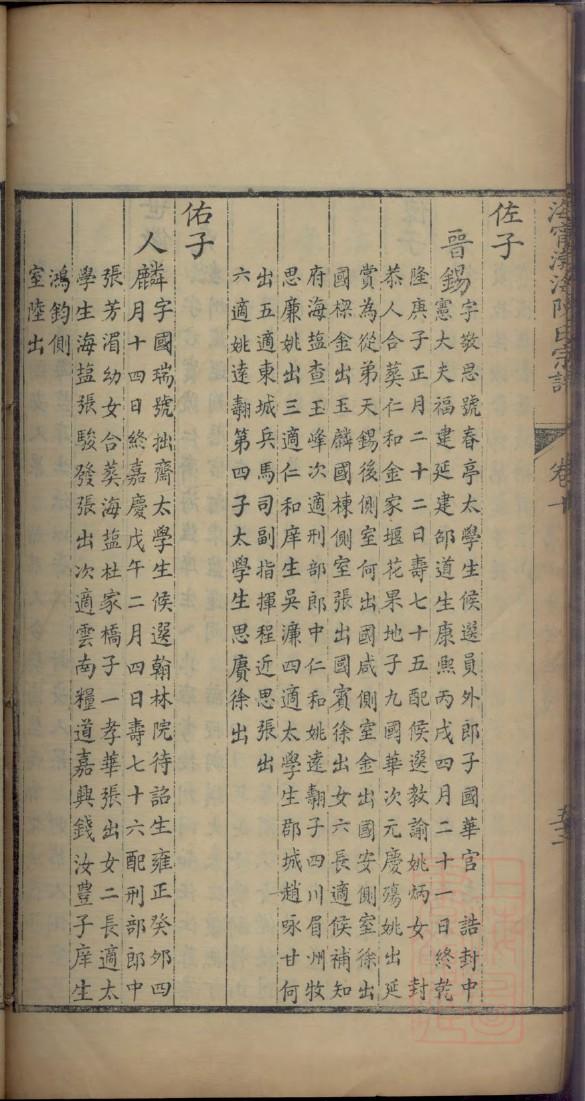 海甯渤海陳氏宗譜
卷十
佐子
晉錫
字敬思號春亭太學生候選員外郎子國華官 誥封中
憲大夫福建延建邵道生康熙丙戌四月二十一日終乾
隆庚子正月二十二日壽七十五配候選教諭姚炳女 封
恭人合葬仁和金家堰花果地子九國華次元慶殤姚出延
賞為從弟天錫後側室何出國咸側室金出國安側室徐出
國樑金出玉麟國棟側室張出國賓徐出女六長適候補知
府海鹽查玉峰次適刑部郎中仁和姚遠翿子四川眉州牧
思廉姚出三適仁和庠生吳濂四適太學生郡城趙咏甘何
出五適東城兵馬司副指揮程近思張出
六適姚遠翿第四子太學生思賡徐出
佑子
人麟
字國瑞號拙齋太學生候選翰林院待詔生雍正癸夘四
月十四日終嘉慶戊午二月四日壽七十六配刑部郎中
張芳湄幼女合葬海鹽杜家橋子一孝華張出女二長適太
學生海鹽張駿發張出次適雲南糧道嘉興錢汝豐子庠生
鴻鈞側
室陸出